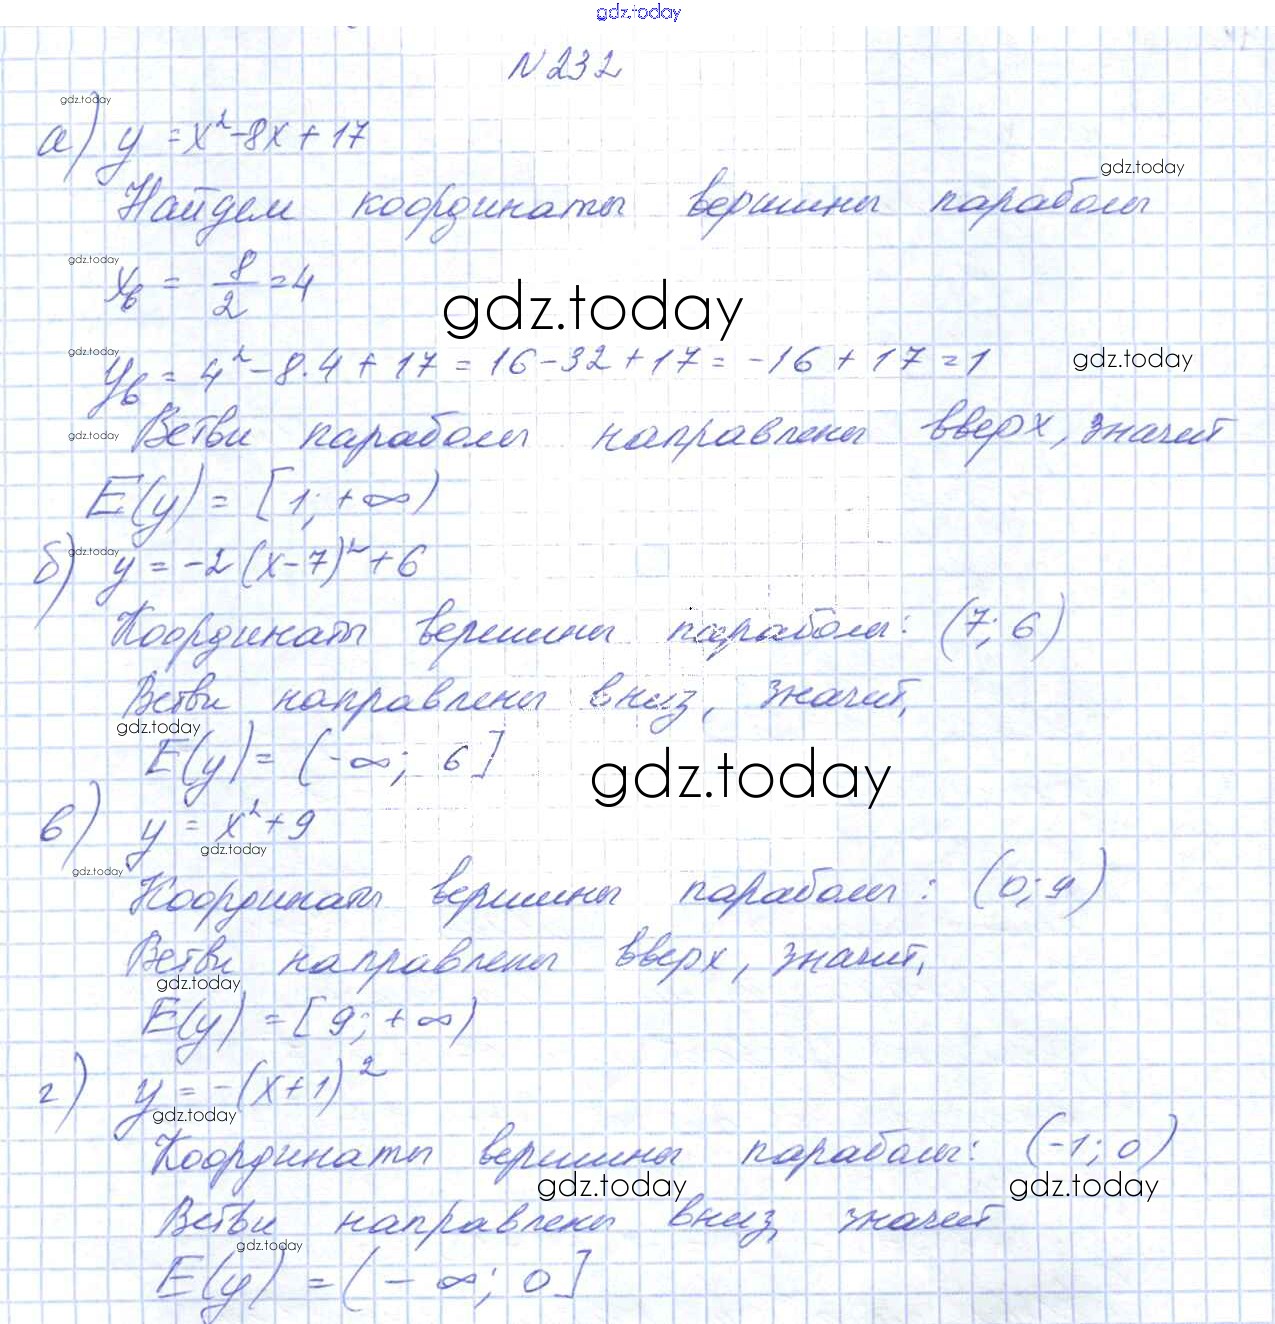 gdz.today
N 232
gdz.today
а) y = x² - 8x + 17
gdz.today
Найдем координаты вершины параболы
gdz.today
xв = 8/2 = 4
gdz.today
gdz.today
yв = 4² - 8·4 + 17 = 16 - 32 + 17 = -16 + 17 = 1
gdz.today
gdz.today
Ветви параболы направлены вверх, значит
E(y) = [1; +∞)
gdz.today
б) y = -2(x-7)² + 6
Координаты вершины параболы: (7; 6)
Ветви направлены вниз, значит,
gdz.today
E(y) = (-∞; 6]
gdz.today
в) y = x² + 9
gdz.today
gdz.today
Координаты вершины параболы: (0; 9)
Ветви направлены вверх, значит,
gdz.today
E(y) = [9; +∞)
г) y = -(x+1)²
gdz.today
Координаты вершины параболы: (-1; 0)
gdz.today
gdz.today
Ветви направлены вниз, значит
gdz.today
E(y) = (-∞; 0]